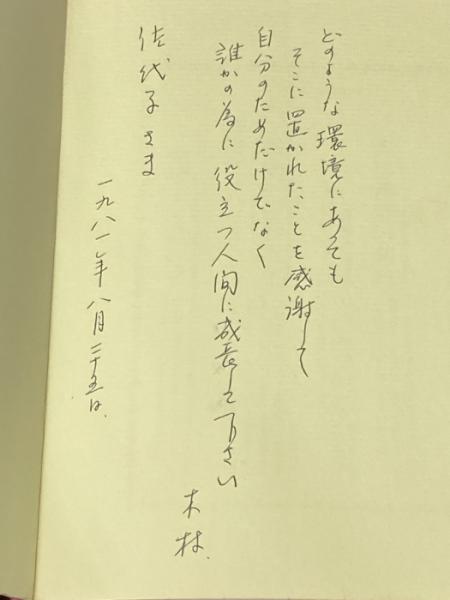 どのような環境にあっても
そこに置かれたことを感謝して
自分のためだけでなく
誰かの為に役立つ人間に成長して下さい
木林
佐代子さま
一九八一年八月二十五日